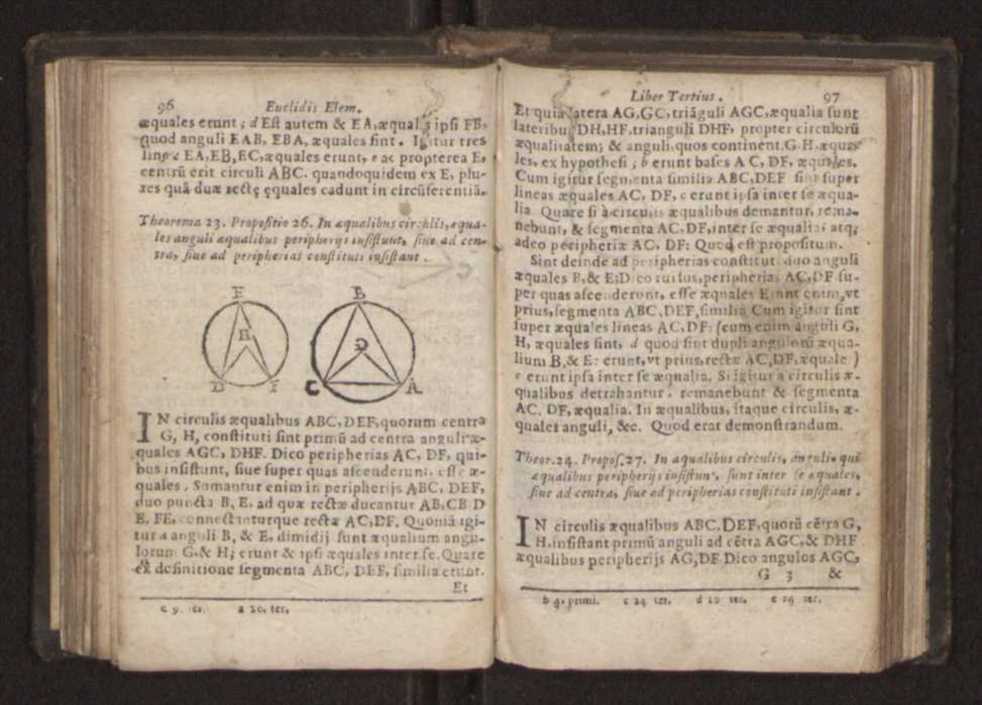 96 Euclidis Elem.
æquales erunt; d Est autem & EA, æqualis ipsi FB,
quod anguli EAB, EBA, æquales sint. Igitur tres
lineæ EA, EB, EC, æquales erunt, e ac propterea E,
centrū erit circuli ABC. quandoquidem ex E, plu-
res quā duæ rectę ęquales cadunt in circūferentiā.
Theorema 23. Propositio 26. In æqualibus circulis, æqua-
les anguli æqualibus peripherijs insistunt, siue ad cen-
tra, siue ad peripherias constituti insistant.
E B
H G
D F C A
IN circulis æqualibus ABC, DEF, quorum centra
G, H, constituti sint primū ad centra anguli æ-
quales AGC, DHF. Dico peripherias AC, DF, qui-
bus insistunt, siue super quas ascenderunt, esse æ-
quales. Sumantur enim in peripherijs ABC, DEF,
duo puncta B, E, ad quæ rectæ ducantur AB, CB D
E, FE, connectanturque rectæ AC, DF. Quoniā igi-
tur a anguli B, & E, dimidij sunt æqualium angu-
lorum G, & H; erunt & ipsi æquales inter se. Quare
ex definitione segmenta ABC, DEF, similia erunt.
Et
e 9. ter. a 20. ter.
Liber Tertius. 97
Et quia latera AG, GC, triāguli AGC, æqualia sunt
lateribus DH, HF, trianguli DHF, propter circulorū
æqualitatem; & anguli, quos continent G H, æqua-
les, ex hypothesi; b erunt bases AC, DF, æquales.
Cum igitur segmenta similia ABC, DEF sint super
lineas æquales AC, DF, c erunt ipsa inter se æqua-
lia. Quare si à circulis æqualibus demantur, rema-
nebunt, & segmenta AC, DF, inter se æqualia; atq;
adeo peripheriæ AC, DF: Quod est propositum.
Sint deinde ad peripherias constituti duo anguli
æquales B, & E: Dico rursus, peripherias AC, DF su-
per quas ascenderunt, esse æquales. Erunt enim, vt
prius, segmenta ABC, DEF, similia. Cum igitur sint
super æquales lineas AC, DF: (cum enim anguli G,
H, æquales sint, d quod sint dupli angulorū æqua-
lium B, & E: erunt, vt prius, rectæ AC, DF, æquale)
e erunt ipsa inter se æqualia. Si igitur à circulis æ-
qualibus detrahantur, remanebunt & segmenta
AC, DF, æqualia. In æqualibus, itaque circulis, æ-
quales anguli, &c. Quod erat demonstrandum.
Theor. 24. Propos. 27. In æqualibus circulis, anguli, qui
æqualibus peripherijs insistunt, sunt inter se æquales,
siue ad centra, siue ad peripherias constituti insistant.
IN circulis æqualibus ABC, DEF, quorū cētra G,
H, insistant primū anguli ad cētra AGC, & DHF
æqualibus peripherijs AG, DF Dico angulos AGC,
G 3 &
b 4. primi. c 24. ter. d 20 ter. e 24 ter.